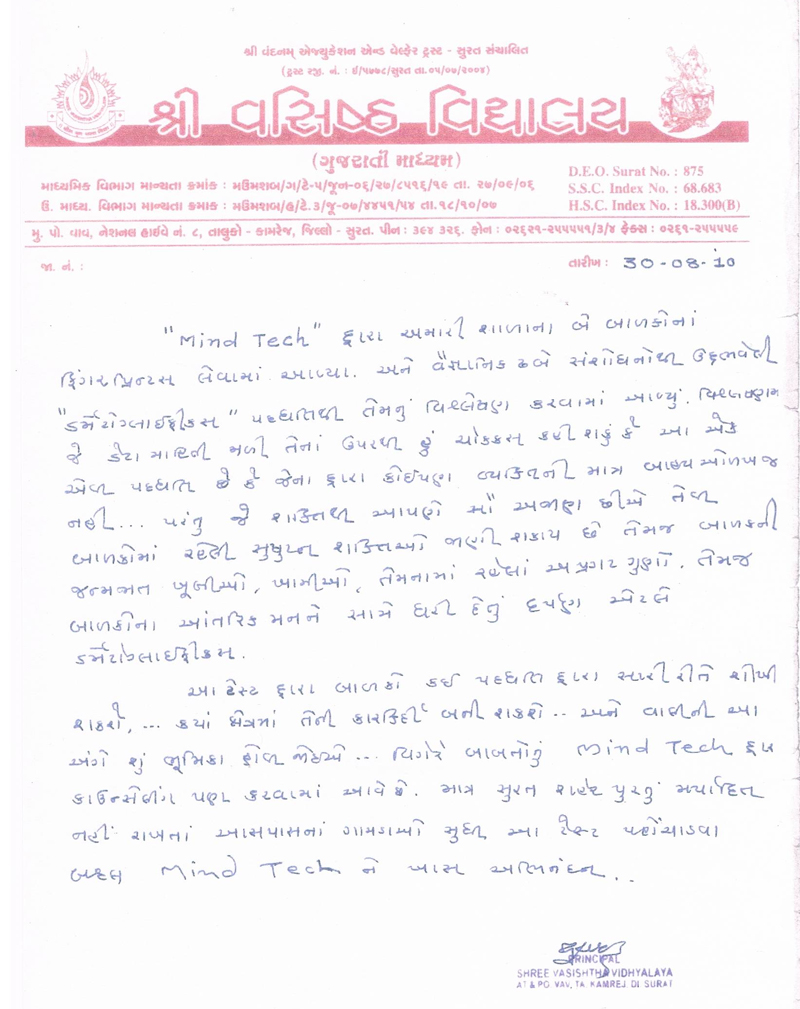 શ્રી વંદનમ્ એજ્યુકેશન એન્ડ વેલ્ફેર ટ્રસ્ટ - સુરત સંચાલિત
(ટ્રસ્ટ રજી. નં. : ઈ/૫૭૭૮/સુરત તા.૦૫/૦૭/૨૦૦૪)
શ્રી વસિષ્ઠ વિદ્યાલય
(ગુજરાતી માધ્યમ)
માધ્યમિક વિભાગ માન્યતા ક્રમાંક : મઉમશબ/ગ/ટે-૫/જૂન-૦૬/૨૭/૮૫૧૬/૧૯ તા. ૨૭/૦૯/૦૬
ઉ. માધ્ય. વિભાગ માન્યતા ક્રમાક : મઉમશબ/હ/ટે.૩/જૂ-૦૭/૪૪૫૧/૫૪ તા.૧૮/૧૦/૦૭
D.E.O. Surat No. : 875
S.S.C. Index No. : 68.683
H.S.C. Index No. : 18.300(B)
મુ. પો. વાવ, નેશનલ હાઈવે નં. ૮, તાલુકો - કામરેજ, જિલ્લો - સુરત. પીન : ૩૯૪ ૩૨૬. ફોન : ૦૨૬૨૧-૨૫૫૫૫૧/૩/૪ ફેક્સ : ૦૨૬૧-૨૫૫૫૫૯
જા. નં. :
તારીખ : 30-08-10
"Mind Tech" દ્વારા અમારી શાળાના બે બાળકોનાં
ફિંગરપ્રિન્ટસ લેવામાં આવ્યા. અને વૈજ્ઞાનિક ઢબે સંશોધનોથી ઉદ્દભવેલી
"ડર્મેટોગ્લાઈફીકસ" પધ્ધતિથી તેમનું વિશ્લેષણ કરવામાં આવ્યું.
જે ડેટા માહિતી મળી તેનાં ઉપરથી હું ચોક્કસ કહી શકું કે આ એક
એવી પધ્ધતિ છે કે જેના દ્વારા કોઈપણ વ્યક્તિની માત્ર બાહ્ય ઓળખ જ
નહી... પરંતુ જે શક્તિથી આપણે સૌ અજાણ છીએ તેવી
બાળકોમાં રહેલી સુષુપ્ત શક્તિઓ જાણી શકાય છે તેમજ બાળકની
જન્મજાત ખૂબીઓ, ખામીઓ, તેમનામાં રહેલાં અપ્રગટ ગુણો. તેમજ
બાળકોના આંતરિક મનને સામે ધરી દેતું દર્પણ એટલે
ડર્મેટોગ્લાઈફીકસ.
આ ટેસ્ટ દ્વારા બાળકો કઈ પધ્ધતિ દ્વારા સારી રીતે શીખી
શકશે, ... ક્યાં ક્ષેત્રમાં તેની કારકિર્દી બની શકશે.. અને વાલીની આ
અંગે શું ભૂમિકા હોવી જોઈએ... વિગેરે બાબતોનું Mind Tech દ્વારા
કાઉન્સેલીંગ પણ કરવામાં આવે છે. માત્ર સુરત શહેર પુરતું મર્યાદિત
નહીં રાખતાં આસપાસનાં ગામડાઓ સુધી આ ટેસ્ટ પહોંચાડવા
બદલ Mind Tech ને ખાસ અભિનંદન..
PRINCIPAL
SHREE VASISHTHA VIDHYALAYA
AT & PO VAV, TA. KAMREJ DI SURAT